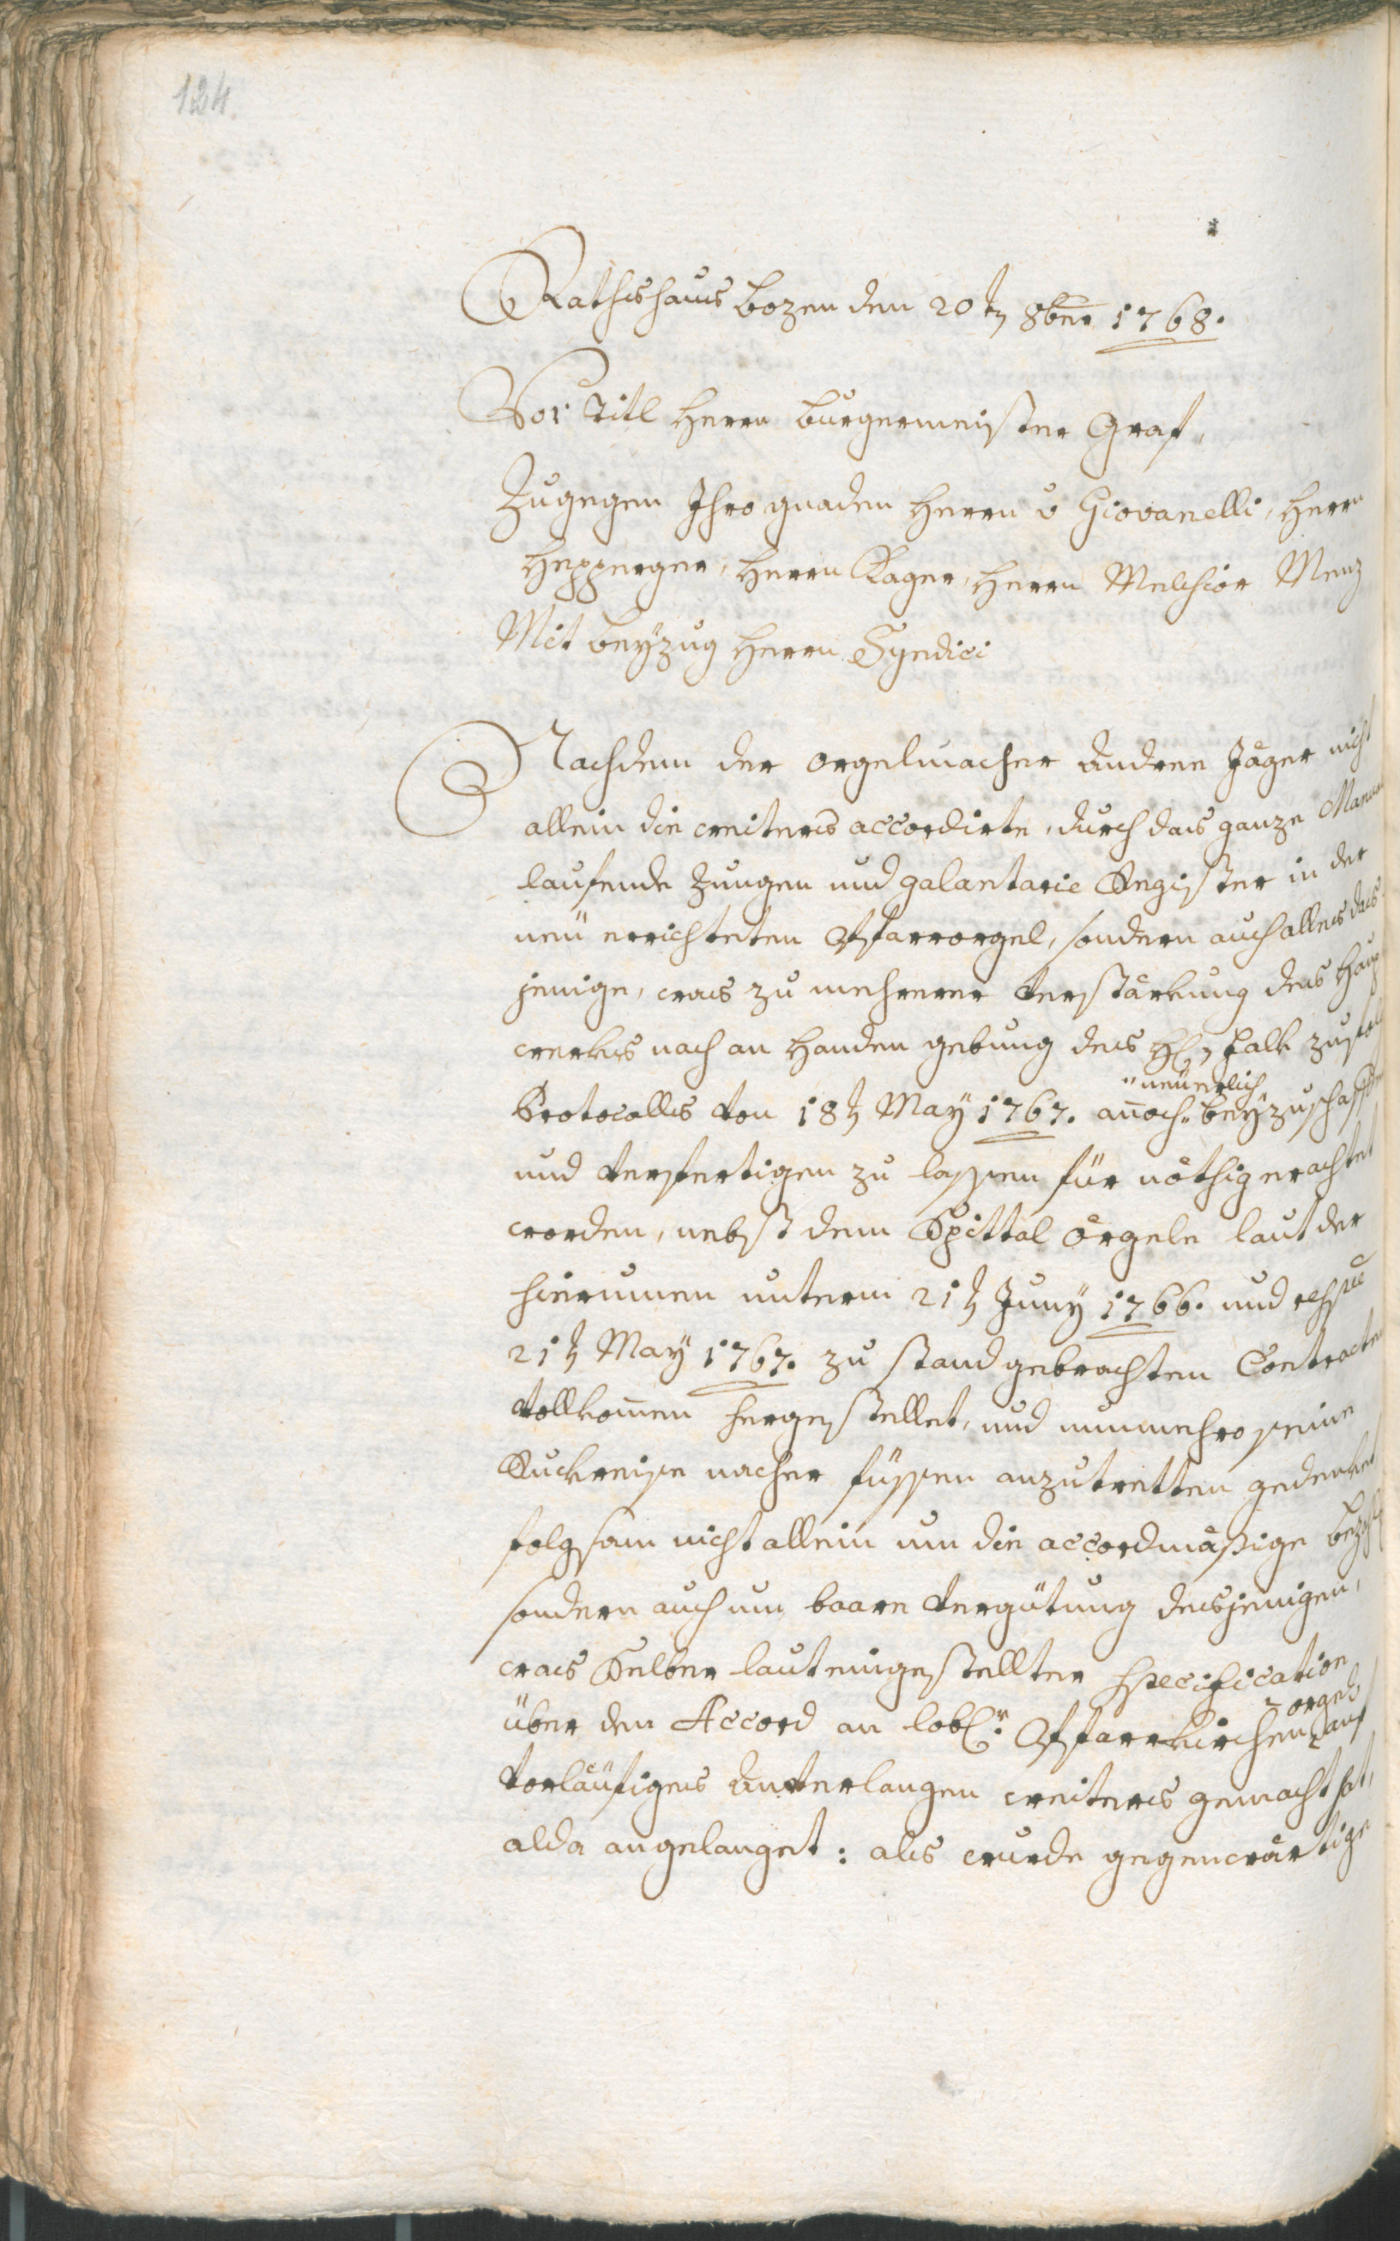 124.
Rathshaus Bozen den 20t 8ber 1768.
Vor Titl Herrn Burgermeister Graf,
Zugegen Ihro gnaden Herrn v Giovanelli, Herrn
Hepperger, Herrn Kager, Herrn Melchior Menz
Mit beyzug Herrn Syndici
Nachdem der orgelmacher Andree Jäger nicht
allein die weiters accordirte, durch das ganze Manual
laufende Zungen und galantarie Register in der
neu errichteten Pfarrorgel, sondern auch alles das
jenige, was zu mehrerer verstärkung des Haupt
werks nach an Handen gebung des H: Falk zufolg
Protocolls von 18t May 1767. annoch
"neüerlich
beyzuschaffen
und verfertigen zu lassen für nöthig erachtet
worden, nebst dem Spittal örgele laut der
hierumen unterm 21t Juny 1766. und resp͞ve
21t May 1767. zu stand gebrachten Contracten
vollkomen hergestellet, und nunmehro seine
Ruckreise nacher füssen anzutretten gedenket
folgsam nicht allein um die accordmäßige
sondern auch um baare vergütung desjenigen,
was Selber laut eingestellter Specification
über den Accord an lobl:r Pfarrkirchen
orgel
auf
vorläufiges Anverlangen weiters gemacht hat,
alda angelanget: als wurde gegenwärtige